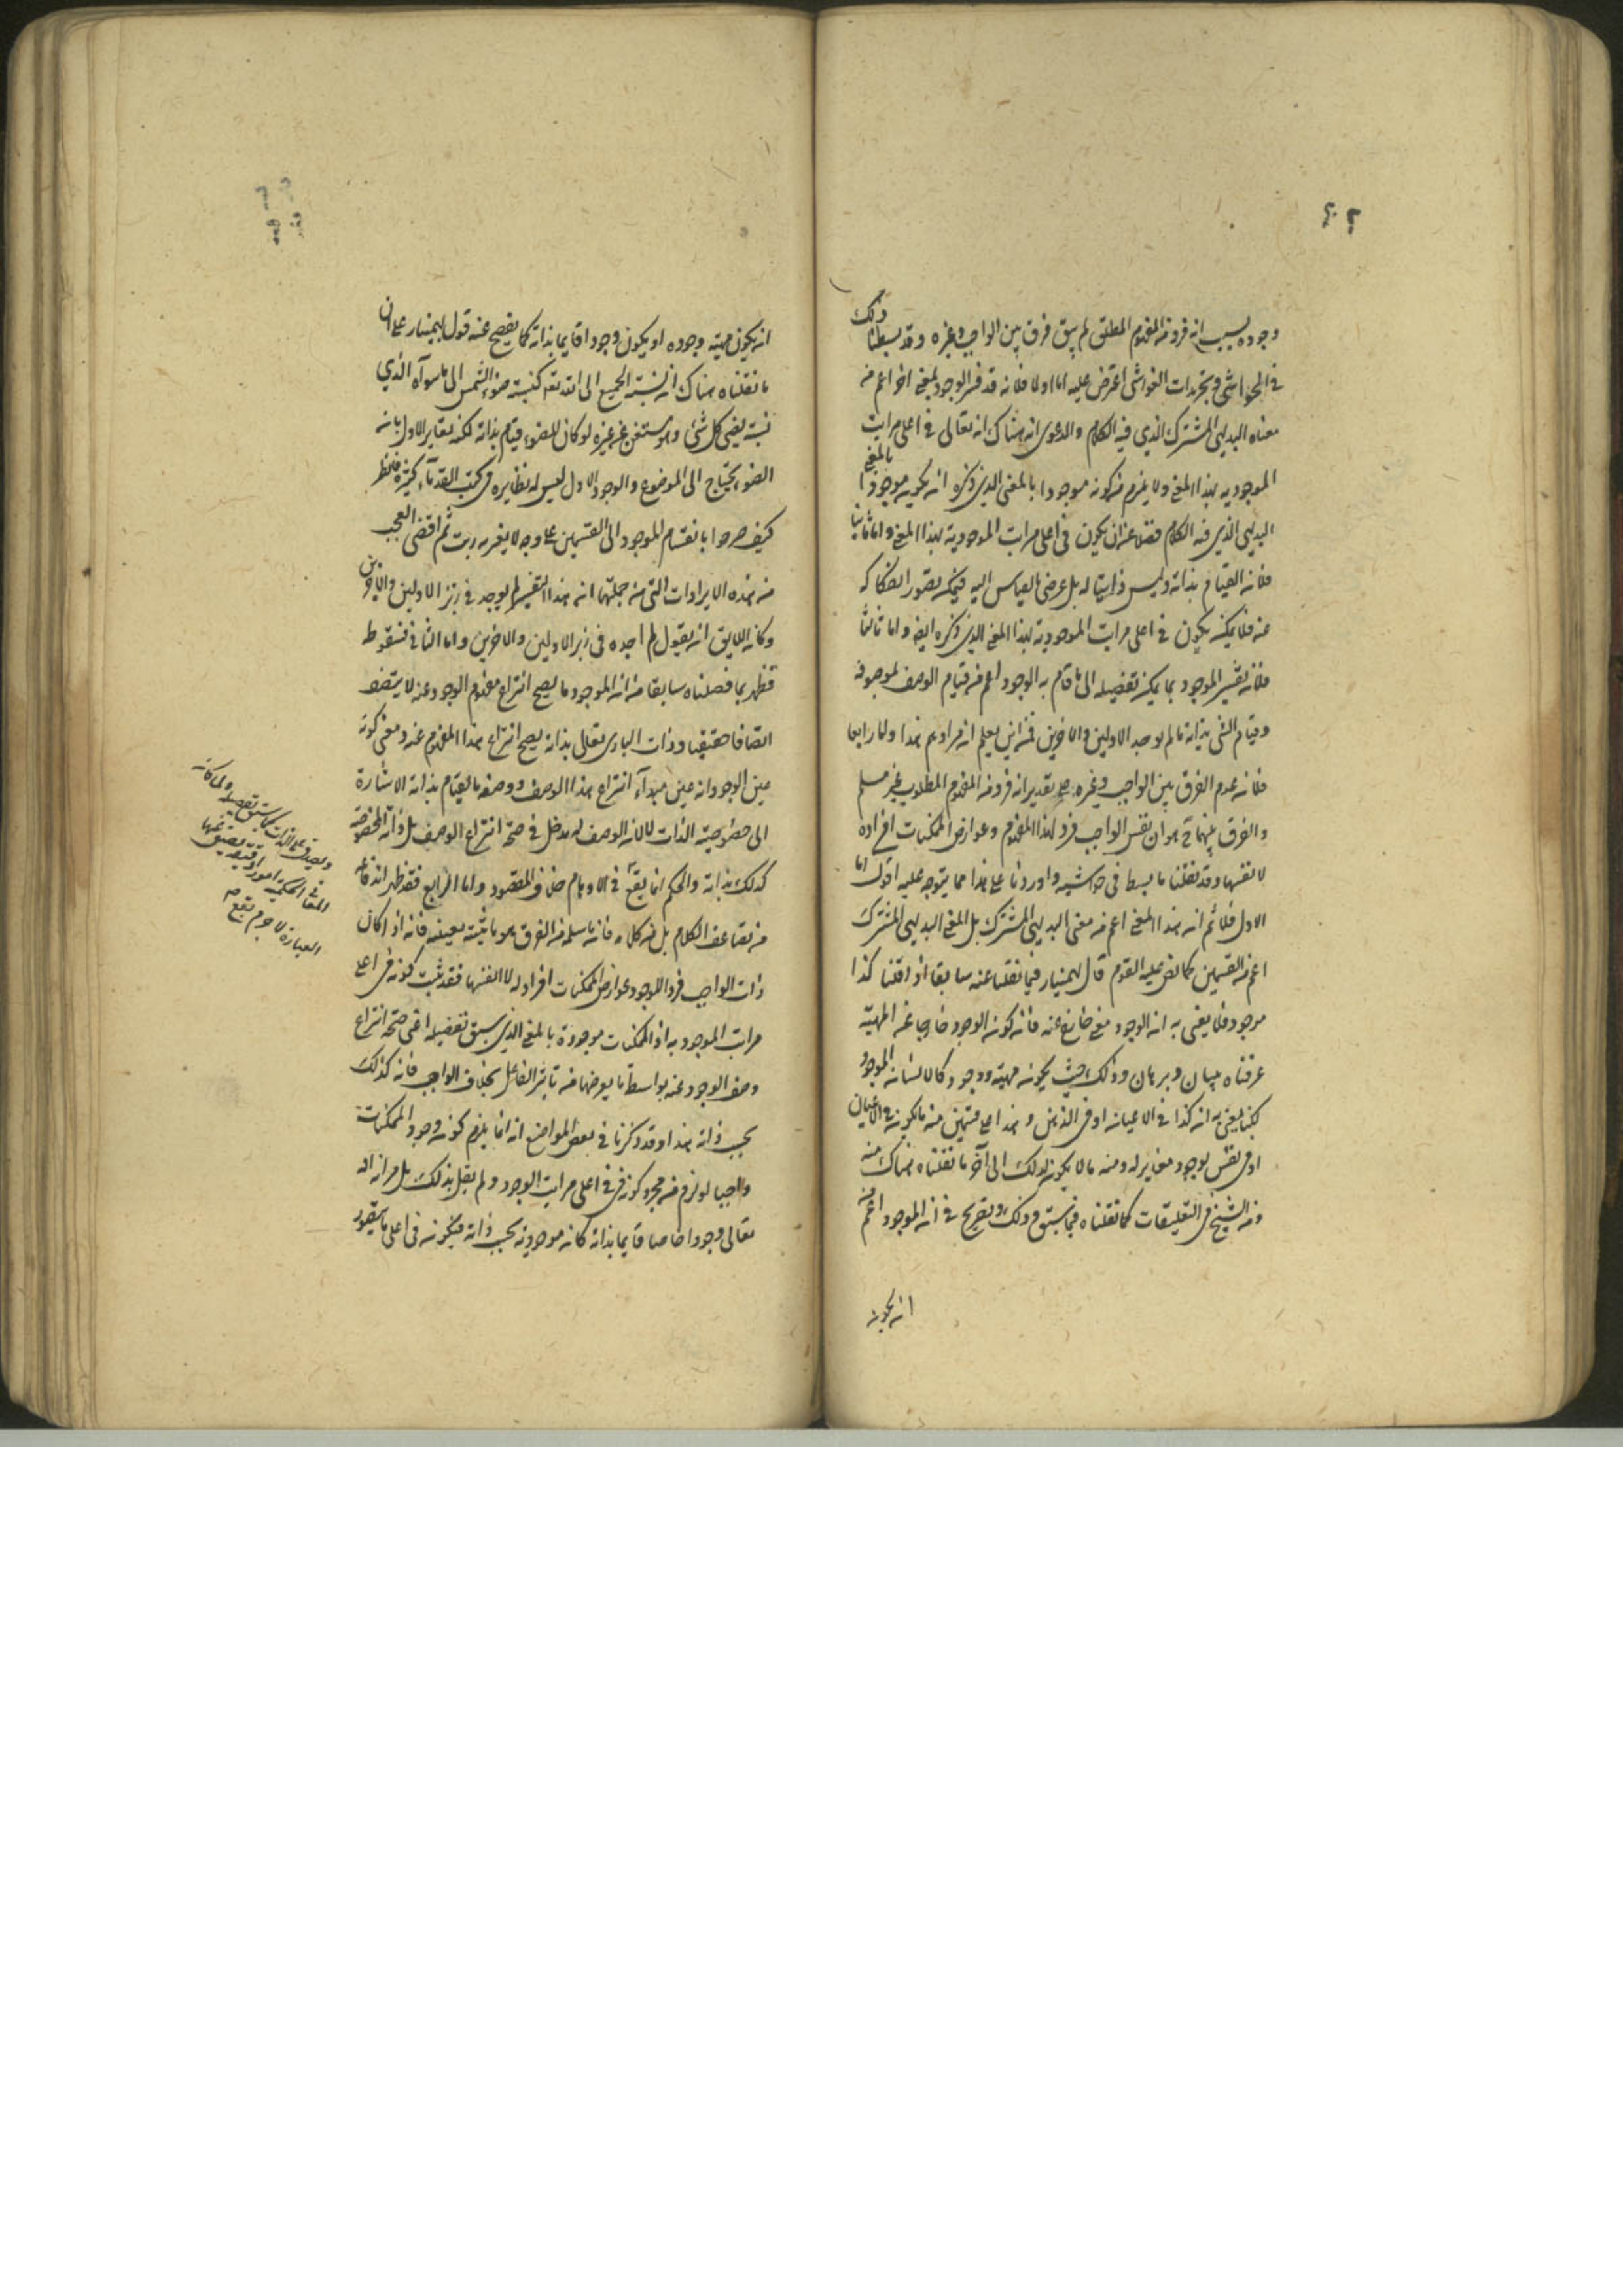 ٢٠٢
وجوده بسبب انه فرد من المفهوم المطلق لم يبق فرق بين الواجب وغيره وقد بسطنا ذلك
في الحواشي وتجريدات الغواشي اعترض عليه اما اولا فلانه قد فسر الوجود بمعنى اخر اعم من
معناه البديهي المشترك الذي فيه الكلام والدعوى انه هناك انه تعالى في اعلى مراتب
الموجوديه بهذا المعنى ولا يلزم من كونه موجودا بالمعنى الذي ذكره ان يكون موجودا بالمعنى
البديهي الذي فيه الكلام فضلا عن ان يكون في اعلى مراتب الموجودية بهذا المعنى واما ثانيا
فلانه القيام بذاته وليس ذاتيا له بل عرضي بالقياس اليه فيمكن تصور انفكاكه
عنه فلا يمكنه يكون في اعلى مراتب الموجودية بهذا المعنى الذي ذكره ايضا واما ثالثا
فلانه تفسير الموجود بما يمكن تفصيله الى ما قام به الوجود اعم من قيام الوصف لموصوفه
وقيام الشي بذاته مالم يوجد الاولين والاخرين فمن اين يعلم انه مرادهم هذا واما رابعا
فلانه عدم الفرق بين الواجب وغيره على تقدير انه فرد من المفهوم المطلوب غير مسلم
والفرق بينهما ح هو ان نفس الواجب فرد لهذا المفهوم وعوارض الممكنات افراده
لا نفسها وقد نقلنا ما بسط في حواشيه واوردنا على هذا مما يتوجه عليه اقول اما
الاول فلانم انه هذا المعنى اعم من معنى البديهي المشترك بل المعنى البديهي المشترك
اعم من القسمين كما نص عليه القوم قال بهمنيار فيما نقلنا عنه سابقا اذا قلنا كذا
موجود فلا يعنى به انه الوجود معنى خارج عنه فانه كونه الوجود خارجا عن المهيّة
عرفناه ببيان وبرهان وذلك حيث يكون مهية ووجود كالانسان الموجود
لكنا نعني به انه كذا في الاعيان او في الذهن وهذا على قسمين منه ما يكون في الاعيان
او في نفس بوجود مغاير له ومنه ما لا يكون كذلك الى آخر ما نقلناه هناك منه
ومن الشيخ في التعليقات كما نقلناه فيما سبق وذلك تصريح في انه الموجود اعم من
ان يكون
ان يكون مهية وجوده او يكون وجودا قايما بذاته كما يفصح عنه قول بهمنيار على ان
ما نقلناه هناك ان نسبة الجميع الى الله تعـ كنسبة ضوء الشمس الى ما سواه الذي
نسبة يضيء كل شئ وهو مستغن عن غيره لو كان للضوء قيام بذاته لكنه يغاير الاول بانه
الضوء يحتاج الى الموضوع والوجود الاول ليس له نظايره في كتب القدماء كثيرة فلينظر
كيف صرحوا بانقسام الموجود الى القسمين على وجه لا يعتريه ريب ثم اقضى العجب
من هذه الايرادات التي من جملتها انه هذا التفسير لم يوجد في زبر الاولين والاخرين
وكان اللايق ان يقول لم اجده في زبر الاولين والاخرين واما الثاني فسقوطه
قد ظهر بما فصلناه سابقا من انه الموجود ما يصح انتزاع مفهوم الوجود عنه لا يتصف
اتصافا حقيقيا وذات الباري تعالى بذاته يصح انتزاع هذا المفهوم عنه ومعنى كونه
عين الوجود انه عين مبدأ انتزاع هذا الوصف ووصفه بالقيام بذاته الاشارة
الى خصوصية الذات لا لانه الوصف له مدخل في صحة انتزاع الوصف بل ذاته المخصوصة
كذلك بذاته والحكم انما يقع في الاوهام خلاف المقصود واما الرابع فقد ظهر اندفاعه
من تضاعف الكلام بل من كلامه فانه ما سلمه من الفرق هو ما نثبته بعينه فانه اذا كان
ذات الواجب فردا للوجود وعوارض الممكنات افراد له لا انفسها فقد ثبت كونه في اعلى
مراتب الموجوديه اذ الممكنات موجودة بالمعنى الذي سبق تفصيله اعني صحة انتزاع
وصف الوجود عنه بواسطة ما يعرضها من تاثير الفاعل بخلاف الواجب فانه كذلك
بحسب ذاته هذا وقد ذكرنا في بعض المواضع انه انما يلزم كونه وجود الممكنات
واجبا لو لزم من مجرد كونه في اعلى مراتب الوجود ولم نقل بذلك بل مرادنا انه
تعالى وجودا خاصا قايما بذاته كانه موجودية بحسب ذاته فيكون في اعلى ما يتصور
ويصدق على الذات كما سبق تفصيله ولما كانت
المعاني الحكمية امورا دقيقة يضيق عنها
العبارة لا جرم يقع م